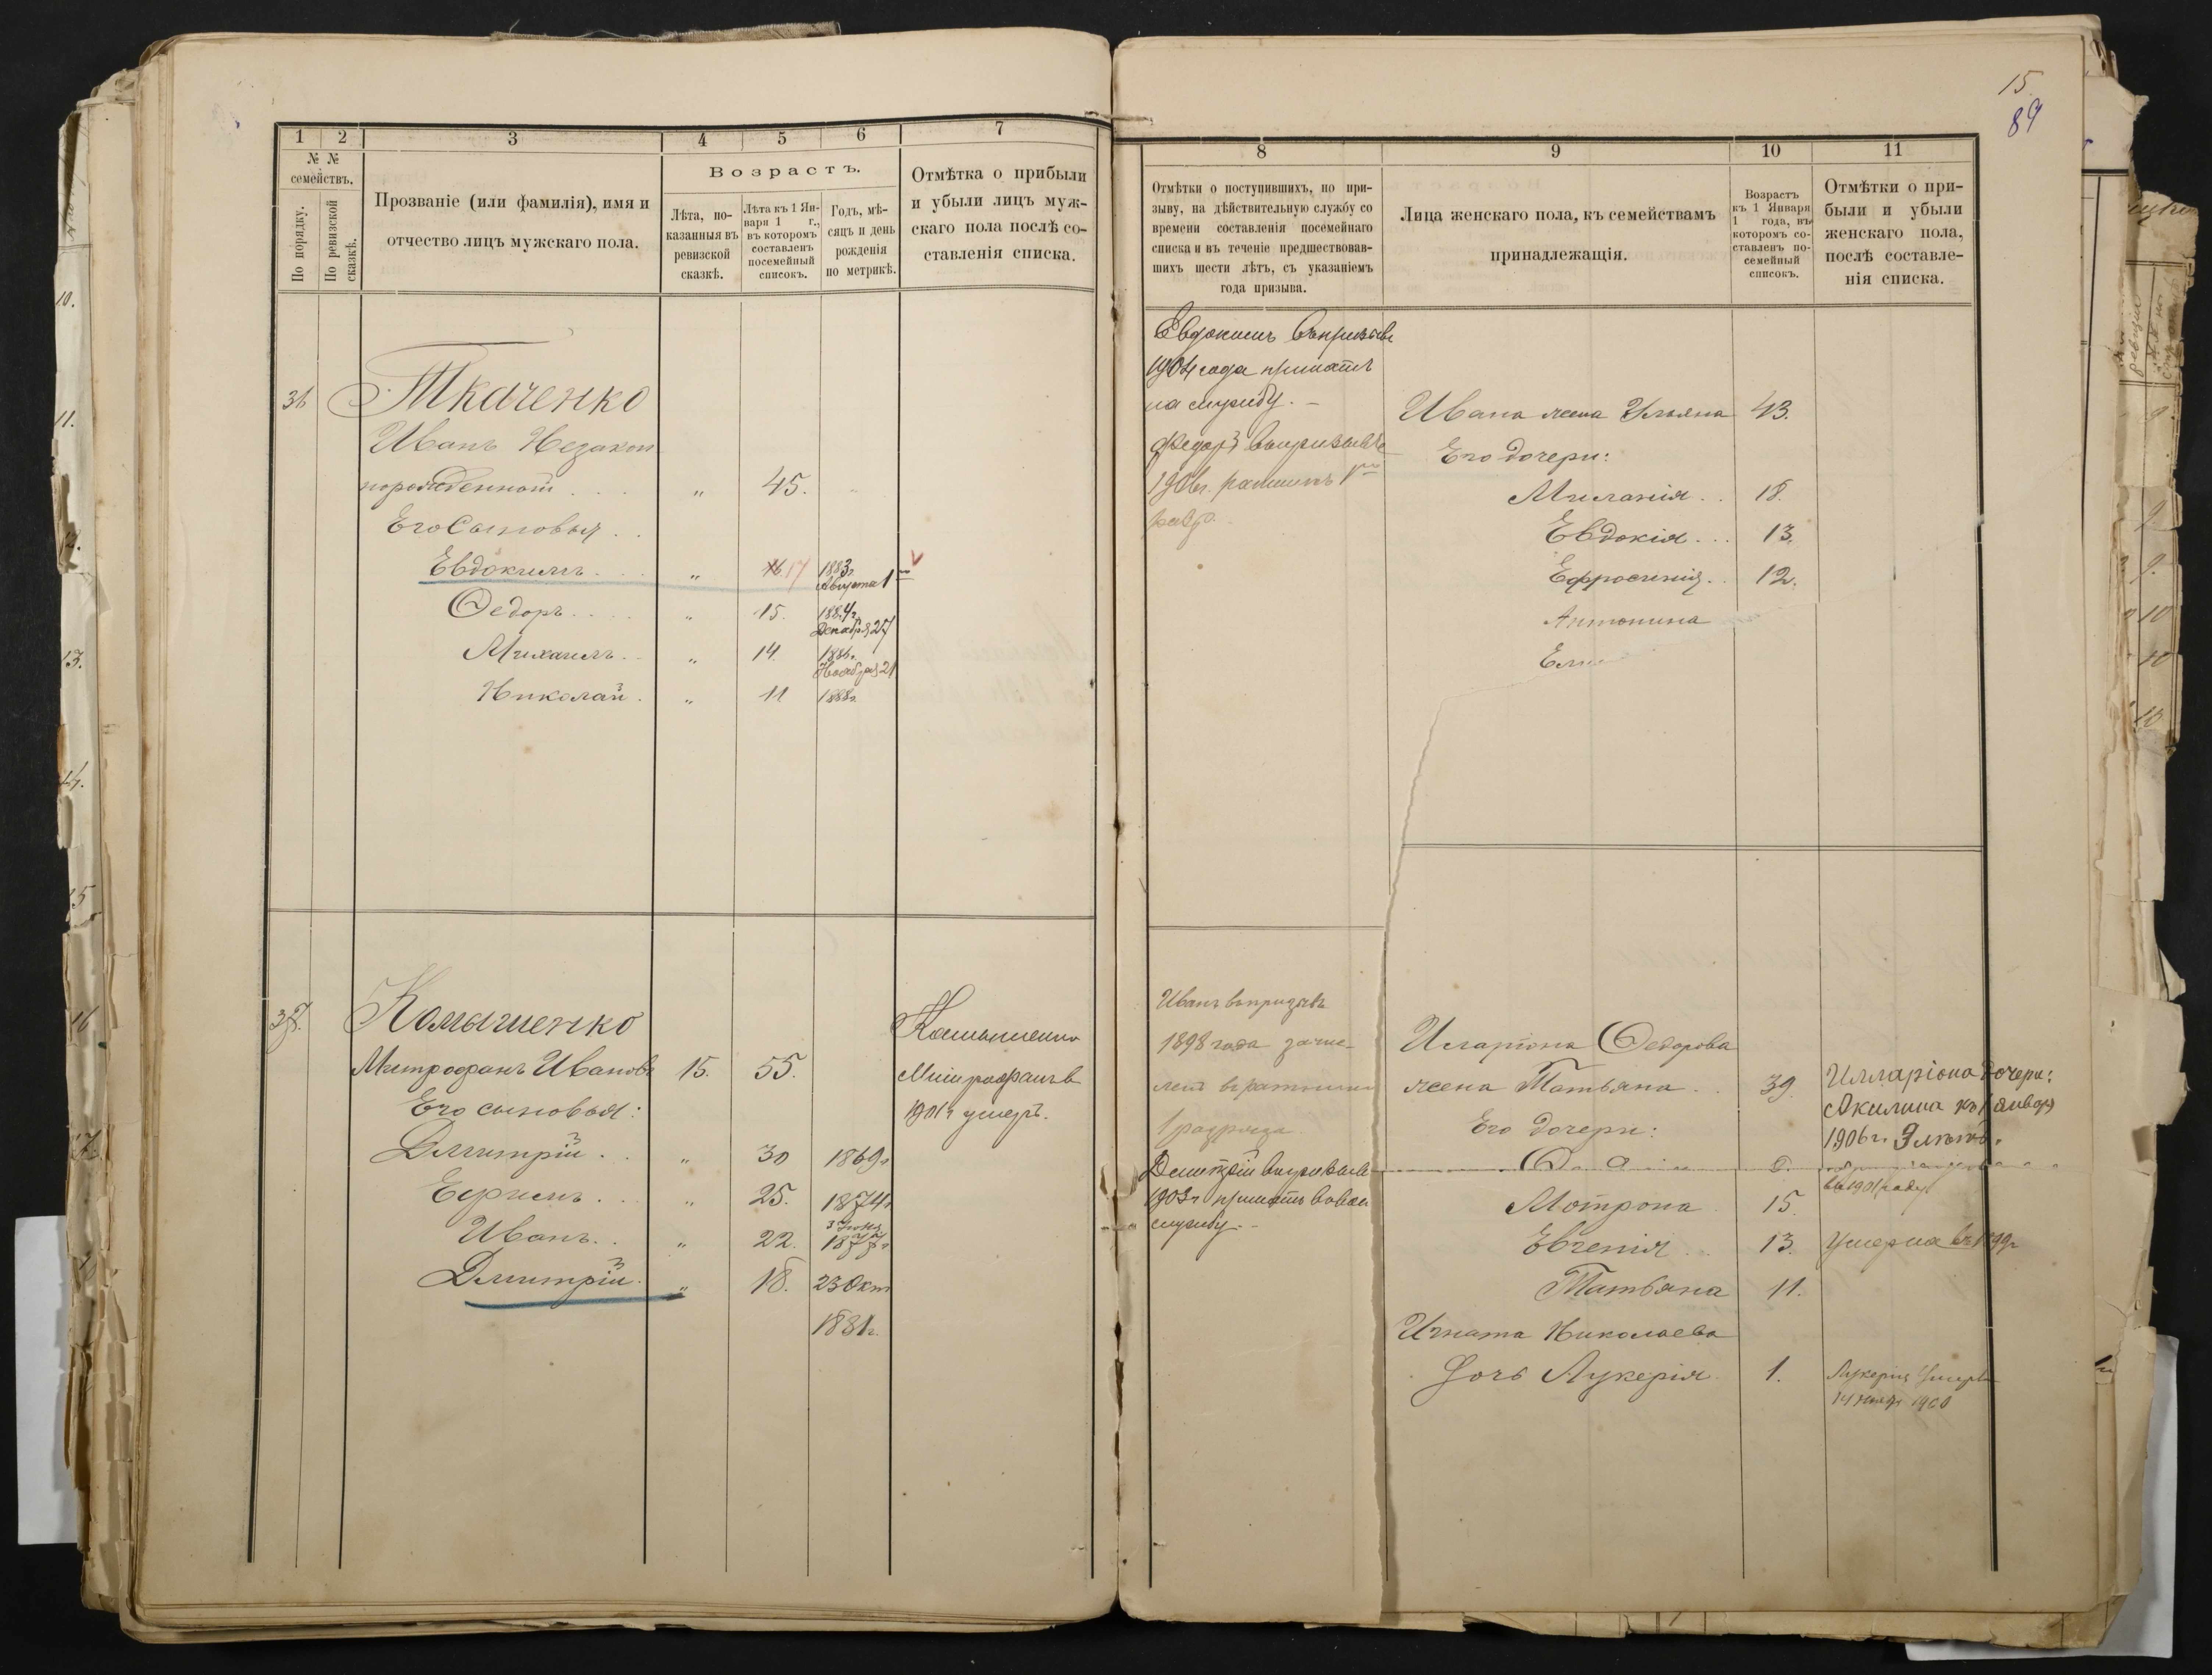 1 2 3 4 5 6 7
№ №
семействъ.
По порядку.
По ревизской
сказкѣ.
Прозваніе (или фамилія), имя и
отчество лицъ мужскаго пола.
Возрастъ.
Лѣта, по-
казанныя въ
ревизской
сказкѣ.
Лѣта къ 1 Ян-
варя 1 г.,
въ которомъ
составленъ
посемейный
списокъ.
Годъ, мѣ-
сяцъ и день
рожденія
по метрикѣ.
Отмѣтка о прибыли
и убыли лицъ муж-
скаго пола послѣ со-
ставленія списка.
36 Ткаченко
Иванъ Незакон
норожденный . . . „ 45.
Его Сыновья . .
Евдокимъ . . . „ 16 17 1883г.
Августа 1
Ѳедоръ . . . „ 15. 1884г.
Декабря 27
Михаилъ . . „ 14. 1886г.
Ноября 21
Николай . „ 11 1888г.
37. Комышенко
Митрофанъ Ивановъ 15. 55.
Его сыновья:
Дмитрій . . „ 30 1869г
Ефимъ . . . „ 25. 1874г
Иванъ . . „ 22. 3 Июня
1877г
Дмитрій . „ 18. 23 Окт
1881г.
Камышенко
Митрофанъ в
1901г умеръ.
15
89
8 9 10 11
Отмѣтки о поступившихъ, по при-
зыву, на дѣйствительную службу со
времени составленія посемейнаго
списка и въ теченіе предшествовав-
шихъ шести лѣтъ, съ указаніемъ
года призыва.
Лица женскаго пола, къ семействамъ
принадлежащія.
Возрастъ
къ 1 Января
1 года, въ
которомъ со-
ставленъ по-
семейный
списокъ.
Отмѣтки о при-
были и убыли
женскаго пола,
послѣ составле-
нія списка.
Евдокимъ въ призывѣ
1904 года принятъ
на службу. –
Федоръ въ призывѣ
1906г. ратникъ 1го
разр.
Ивана жена Ульяна 43.
Его дочери:
Миланія . . 18.
Евдокія . . . 13.
Ефросинія . . 12.
Антонина
Иванъ въ призывѣ
1898 года зачис-
лен въ ратники
1 разряда
Дмитрій въ призывѣ
1903г принятъ в воен
службу. –
Иларіона Ѳедорова
жена Татьяна . 39.
Его дочери:
Мотрона 15.
Евгенія . . 13.
Татьяна 11.
Игната Николаева
Дочь Лукерія 1.
Илларіона дочери:
Акилина къ 1 январ
1906г. 9 лѣтъ.
въ 1901 году
Умерла въ 1899г
Лукерія Умерла
14 1900